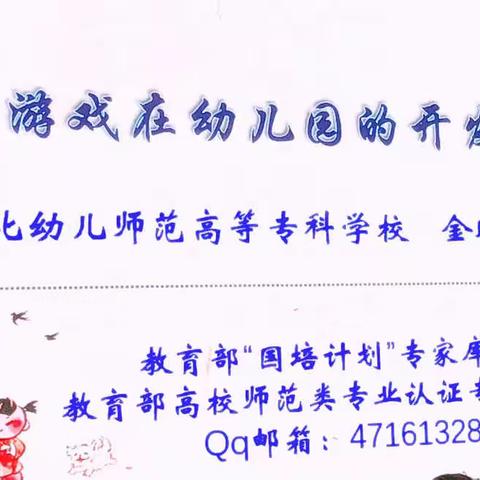 游戏在幼儿园的开发
北幼儿师范高等专科学校 金
教育部“国培计划”专家库
教育部高校师范类专业认证专
Qq邮箱：47161328